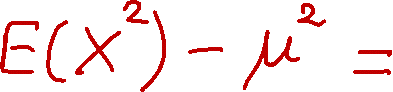 E(X²) - μ² =